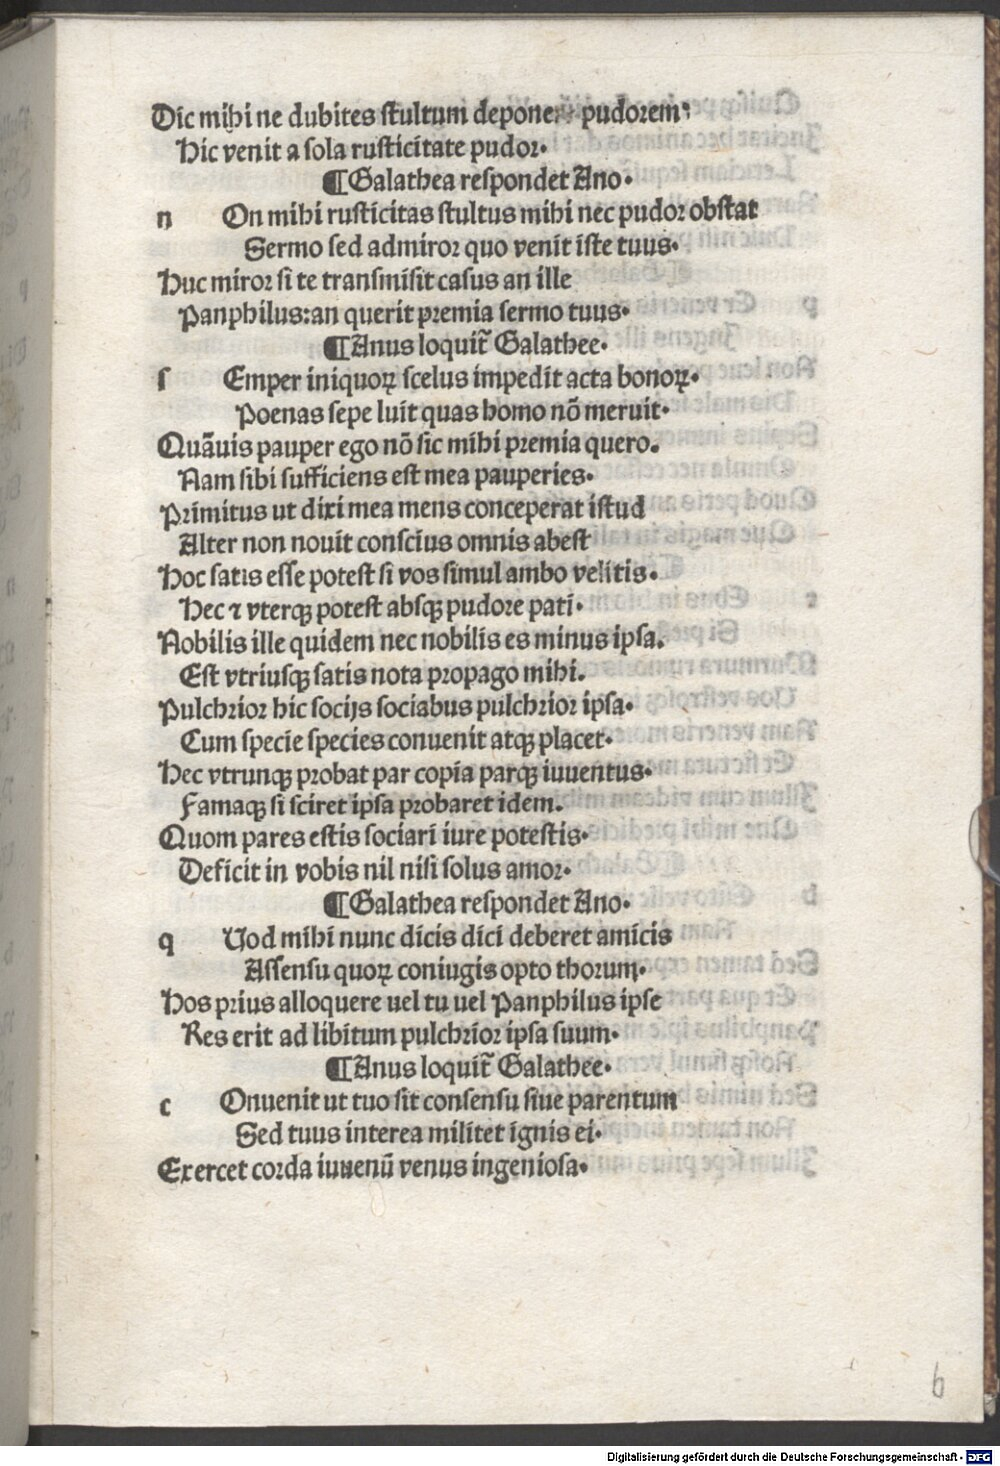 Dic mihi ne dubites stultum depone pudorem
Hic venit a sola rusticitate pudor.
¶Galathea respondet Ano.
n On mihi rusticitas stultus mihi nec pudor obstat
Sermo sed admiror quo venit iste tuus.
Huc miror si te transmisit casus an ille
Panphilus:an querit premia sermo tuus.
¶Anus loquit̃ Galathee.
s Emper iniquoꝝ scelus impedit acta bonoꝝ.
Poenas sepe luit quas homo nõ meruit.
Quãuis pauper ego nõ sic mihi premia quero.
Nam sibi sufficiens est mea pauperies.
Primitus ut dixi mea mens conceperat istud
Alter non nouit conscius omnis abest
Hoc satis esse potest si vos simul ambo velitis.
Hec ⁊ vterqꝫ potest absqꝫ pudore pati.
Nobilis ille quidem nec nobilis es minus ipsa.
Est vtriusqꝫ satis nota propago mihi.
Pulchrior hic socijs sociabus pulchrior ipsa.
Cum specie species conuenit atqꝫ placet.
Hec vtrunqꝫ probat par copia parqꝫ iuuentus.
Famaqꝫ si sciret ipsa probaret idem.
Quom pares estis sociari iure potestis.
Deficit in vobis nil nisi solus amor.
¶Galathea respondet Ano.
q Uod mihi nunc dicis dici deberet amicis
Assensu quoꝝ coniugis opto thorum.
Hos prius alloquere uel tu uel Panphilus ipse
Res erit ad libitum pulchrior ipsa suum.
¶Anus loquit̃ Galathee.
c Onuenit ut tuo sit consensu siue parentum
Sed tuus interea militet ignis ei.
Exercet corda iuuenũ venus ingeniosa.
6
Digitalisierung gefördert durch die Deutsche Forschungsgemeinschaft - DFG